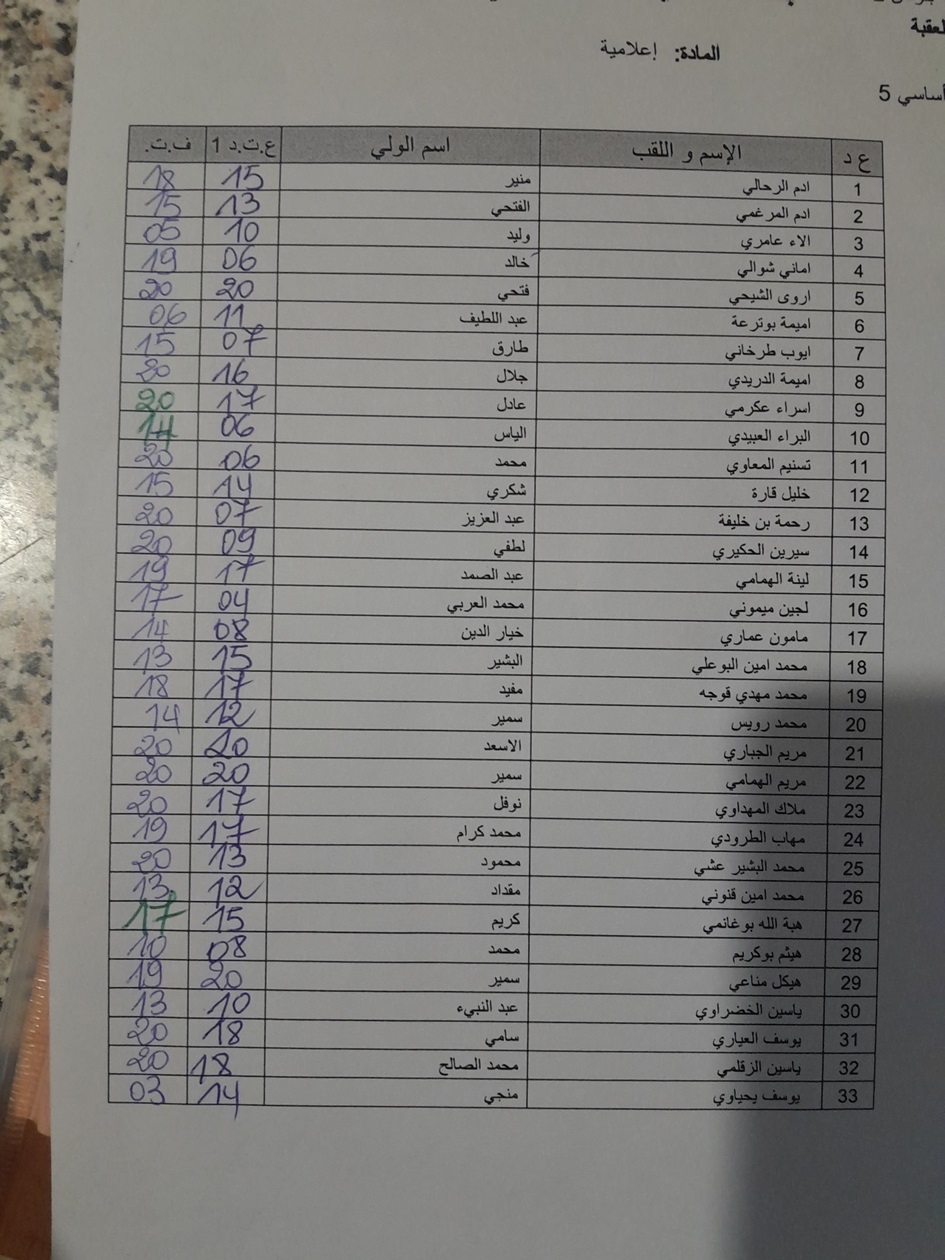 لعقبة
المادة: إعلامية
أساسي 5
ع د الإسم و اللقب اسم الولي ع.ت.د 1 ف.ت.
1 ادم الرحالي منير 15 18
2 ادم المرغمي الفتحي 13 15
3 الاء عامري وليد 10 05
4 اماني شوالي خالد 06 19
5 اروى الشيحي فتحي 20 20
6 اميمة بوترعة عبد اللطيف 11 06
7 ايوب طرخاني طارق 07 15
8 اميمة الدريدي جلال 16 20
9 اسراء عكرمي عادل 17 20
10 البراء العبيدي الياس 06 14
11 تسنيم المعاوي محمد 06 20
12 خليل قارة شكري 14 15
13 رحمة بن خليفة عبد العزيز 07 20
14 سيرين الحكيري لطفي 09 20
15 لينة الهمامي عبد الصمد 17 19
16 لجين ميموني محمد العربي 04 17
17 مامون عماري خيار الدين 08 14
18 محمد امين البوعلي البشير 15 13
19 محمد مهدي قوجه مفيد 17 18
20 محمد رويس سمير 12 14
21 مريم الجباري الاسعد 20 20
22 مريم الهمامي سمير 20 20
23 ملاك المهداوي نوفل 17 20
24 مهاب الطرودي محمد كرام 17 19
25 محمد البشير عشي محمود 13 20
26 محمد امين قنوني مقداد 12 13
27 هبة الله بوغانمي كريم 15 17
28 هيثم بوكريم محمد 08 10
29 هيكل مناعي سمير 20 19
30 ياسين الخضراوي عبد النبيء 10 13
31 يوسف العياري سامي 18 20
32 ياسين الزقلمي محمد الصالح 18 20
33 يوسف يحياوي منجي 14 03